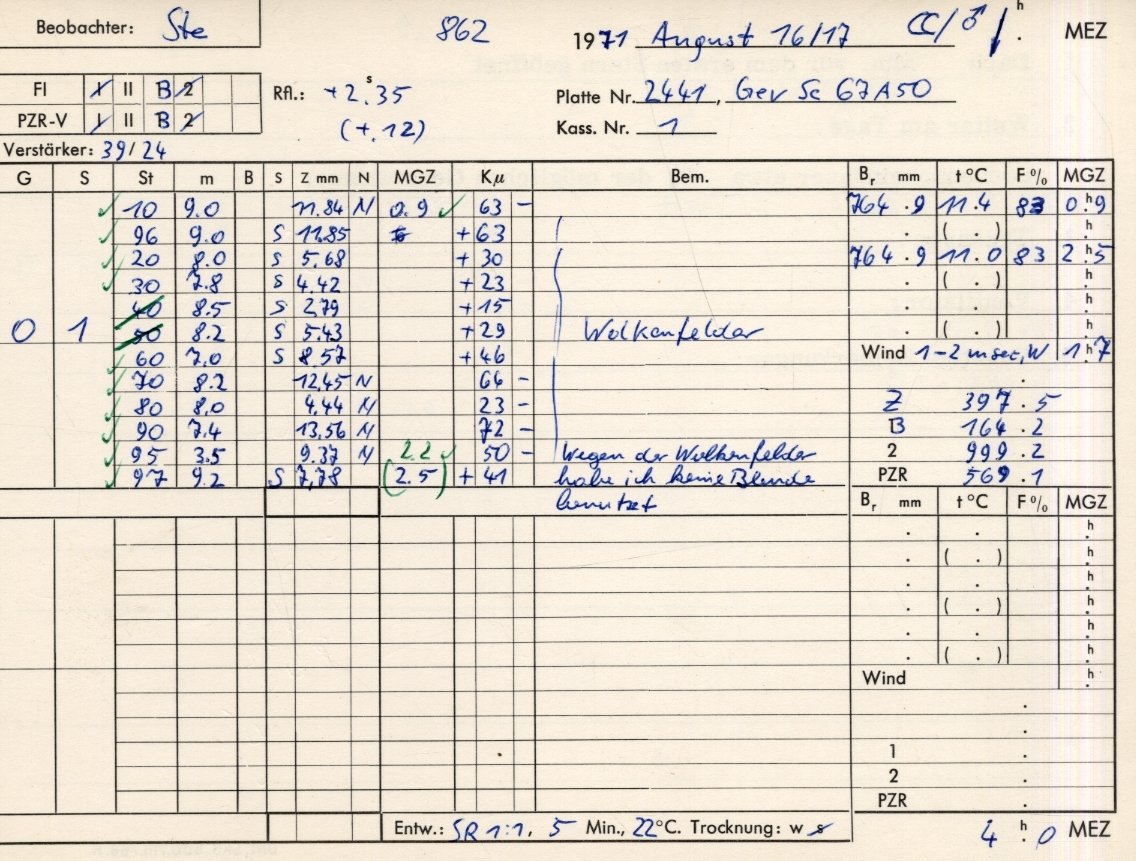 Beobachter: Ste 862 1971 August 16/17 CC/♂ / h . MEZ
FI I II B 2 Rfl.: +2.35 s Platte Nr. 2441, Gev Sc 67A50
PZR-V I II B 2 (+.12) Kass. Nr. 1
Verstärker: 39/24
G S St m B S Z mm N MGZ Kμ Bem. Br mm t °C F % MGZ
✓ 10 9.0 11.84 N 0.9 ✓ 63 − 764.9 11.4 83 0.h9
✓ 96 9.0 S 11.85 +63 . ( . ) h.
✓ 20 8.0 S 5.68 +30 764.9 11.0 83 2.h5
✓ 30 7.8 S 4.42 +23 . ( . ) h.
40 8.5 S 2.79 +15 . . h.
0 1 50 8.2 S 5.43 +29 Wolkenfelder . ( . ) h.
✓ 60 7.0 S 8.57 +46 Wind 1-2 msec, W 1.h7
✓ 70 8.2 12.45 N 66 − .
✓ 80 8.0 4.44 N 23 − Z 397.5
✓ 90 7.4 13.56 N 72 − B 164.2
✓ 95 3.5 9.37 N 2.2 ✓ 50 − Wegen der Wolkenfelder 2 999.2
✓ 97 9.2 S 7,78 (2.5) +41 habe ich keine Blende PZR 569.1
benutzt Br mm t °C F % MGZ
. . h.
. ( . ) h.
. . h.
. ( . ) h.
. . h.
. ( . ) h.
Wind h.
.
1 .
2 .
PZR .
Entw.: SR 1:1, 5 Min., 22°C. Trocknung: w s 4 h. 0 MEZ